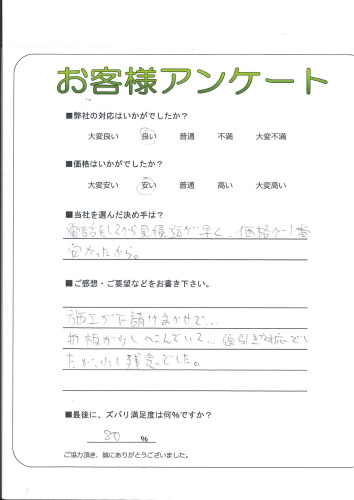 お客様アンケート
■弊社の対応はいかがでしたか?
大変良い 良い 普通 不満 大変不満
■価格はいかがでしたか?
大変安い 安い 普通 高い 大変高い
■当社を選んだ決め手は?
電話をしてから見積迄が早く、価格が1番
安かったから。
■ご感想・ご要望などをお書き下さい。
施工が下請けまかせで...
折板が少しへこんでいて... 値引き対応でし
たが、少し残念でした。
■最後に、ズバリ満足度は何%ですか?
80 %
ご協力頂き、誠にありがとうございました。